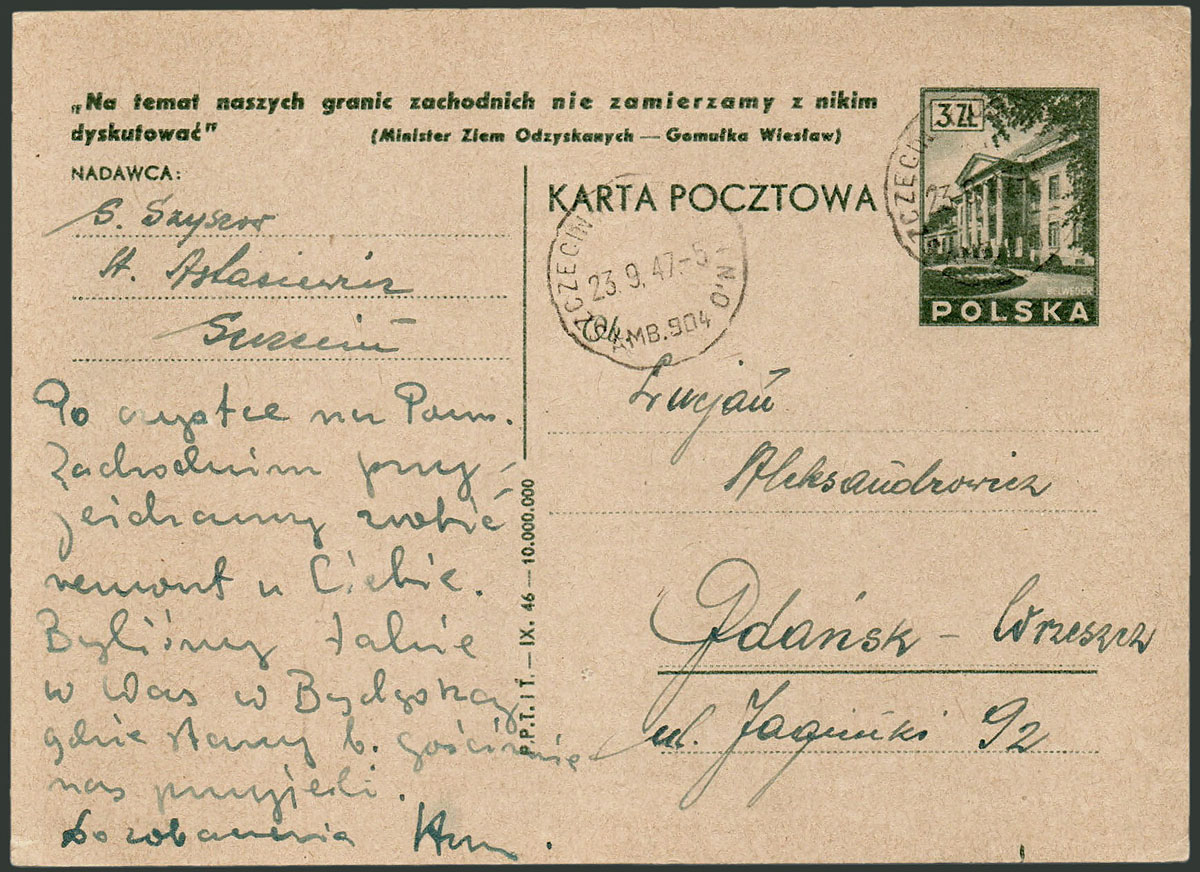 „Na temat naszych granic zachodnich nie zamierzamy z nikim
dyskutować”
(Minister Ziem Odzyskanych — Gomułka Wiesław)
NADAWCA:
S.
St.
Szczecin
Po czystce na Pom.
Zachodnim przy-
jeżdżamy zrobić
remont u Ciebie.
Byliśmy także
w Was w Bydgoszczy
gdzie b. gościnnie
nas przyjęli.
Do zobaczenia
P.P.T. i T. — IX. 46 — 10.000.000
KARTA POCZTOWA
3 ZŁ
BELWEDER
POLSKA
SZCZECIN
23
SZCZECIN
23.9.47.-5
AMB.904
Lucjan
Aleksandrowicz
Gdańsk - Wrzeszcz
ul. 92